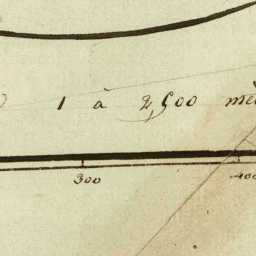 1 à 2,500 mè
300 400